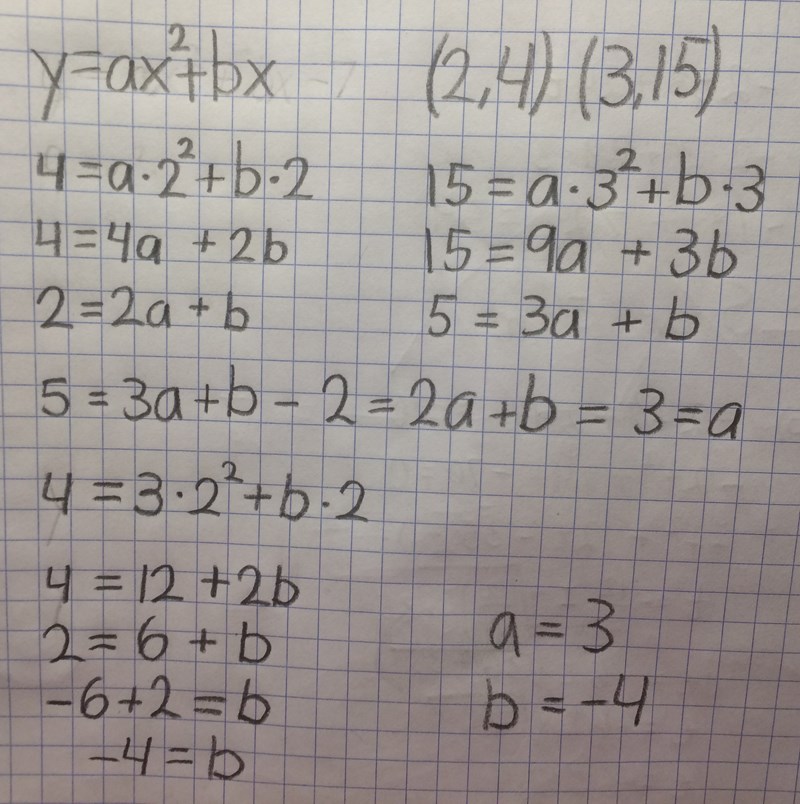 y=ax²+bx (2,4) (3,15)
4=a·2²+b·2 15=a·3²+b·3
4=4a +2b 15=9a + 3b
2=2a+b 5 = 3a + b
5=3a+b - 2=2a+b = 3=a
4 = 3·2²+b·2
4 = 12 +2b
2=6 + b a = 3
-6+2 =b b =-4
-4=b